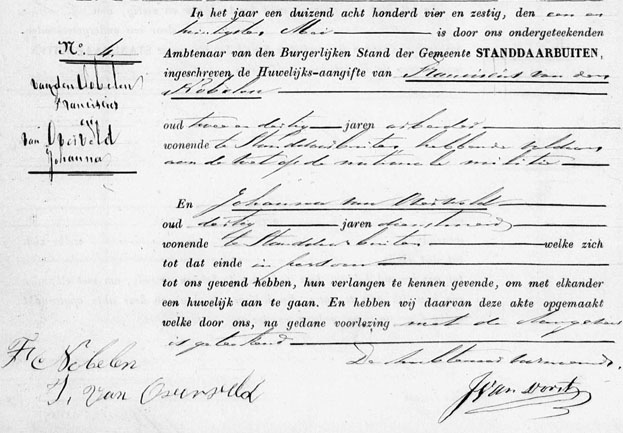 In het jaar een duizend acht honderd vier en zestig, den een en
twintigsten Mei is door ons ondergeteekenden
Nº. 4.
Ambtenaar van den Burgerlijken Stand der Gemeente STANDDAARBUITEN,
ingeschreven de Huwelijks-aangifte van Franciscus van den
Nobelen
van den Nobelen
Franciscus
en
van Overveld
Johanna
oud twee en dertig jaren arbeider
wonende te Standdaarbuiten, hebbende voldaan
aan de wet op de nationale militie
En Johanna van Overveld
oud dertig jaren dienstmeid
wonende te Standdaarbuiten welke zich
tot dat einde in persoon
tot ons gewend hebben, hun verlangen te kennen gevende, om met elkander
een huwelijk aan te gaan. En hebben wij daarvan deze akte opgemaakt
welke door ons, na gedane voorlezing met de
is geteekend
De Ambtenaar voornoemd.
F Nobelen
J. van Oververld
JVan Dorst